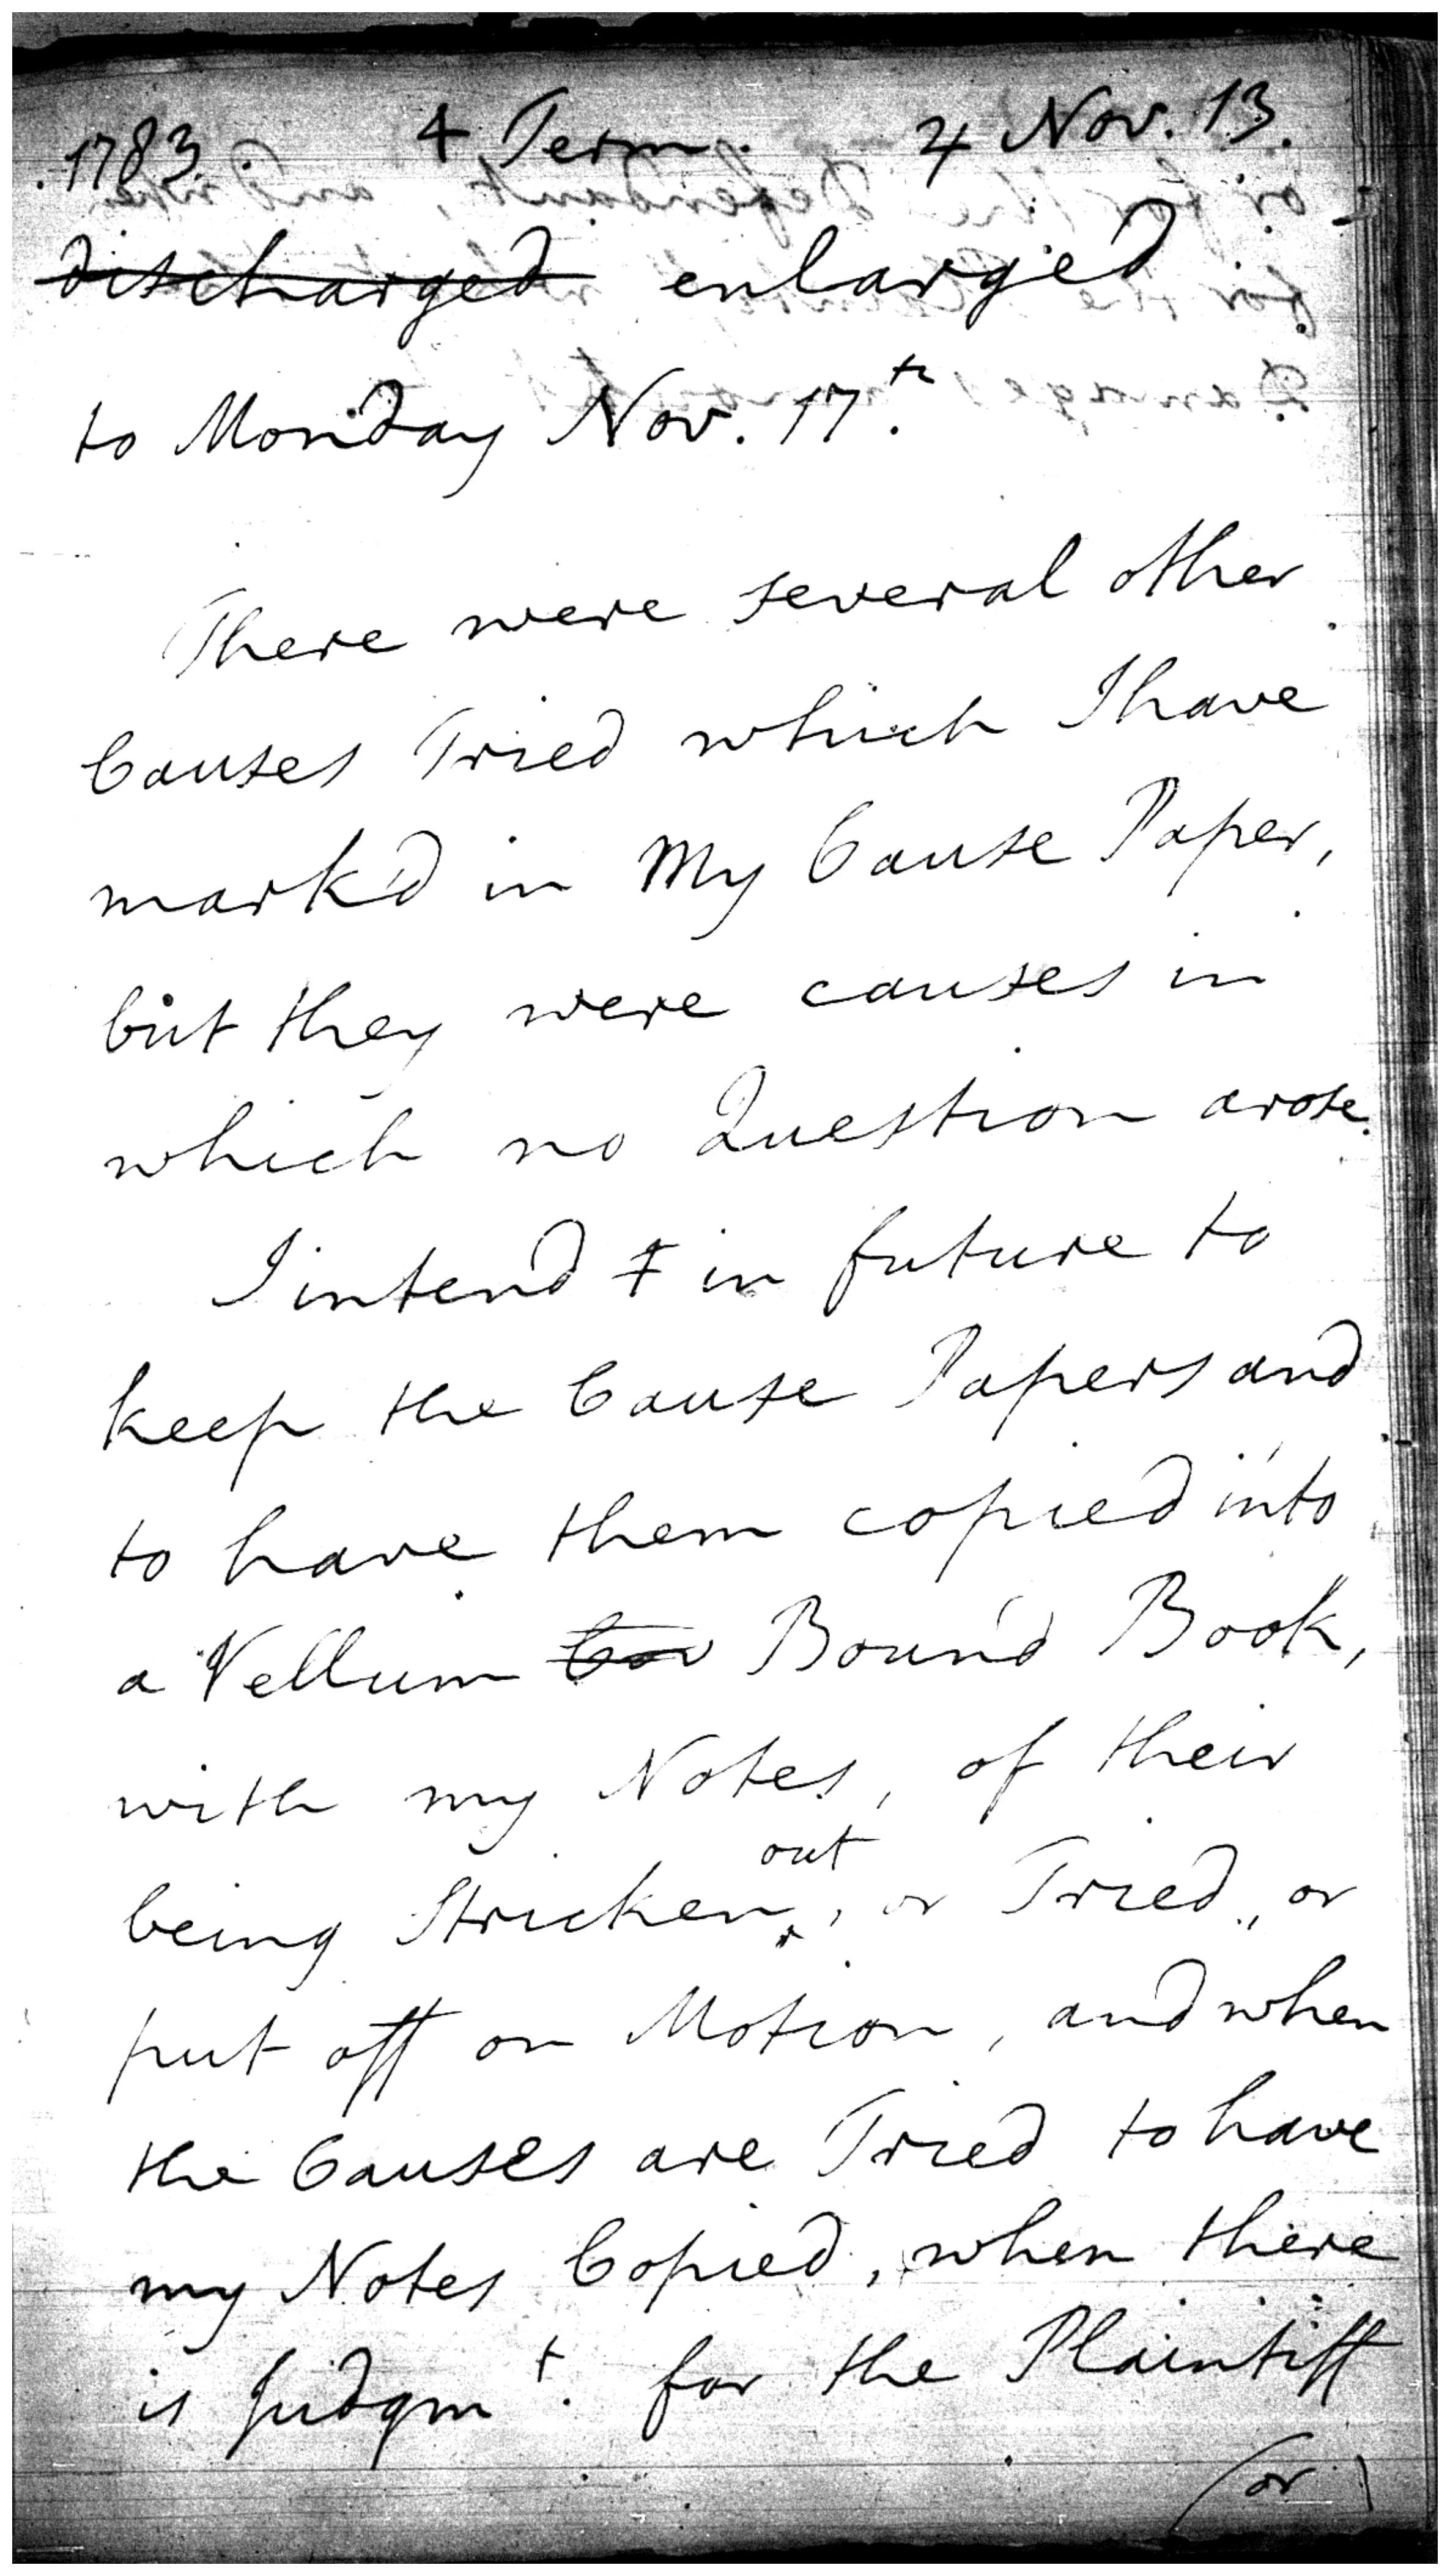 1783. 4 Term. 4 Nov. 13.
discharged enlarged
to Monday Nov. 17.th
There were several other
Causes Tried which I have
mark'd in My Cause Paper,
but they were causes in
which no Question arose.
I intend I in future to
keep the Cause Papers and
to have them copied into
a Vellum Cov Bound Book,
with my Notes, of their
out
being Stricken ‸, or Tried, or
put off on Motion, and when
the Causes are Tried to have
my Notes Copied, when there
is Judgm t. for the Plaintiff
(or)